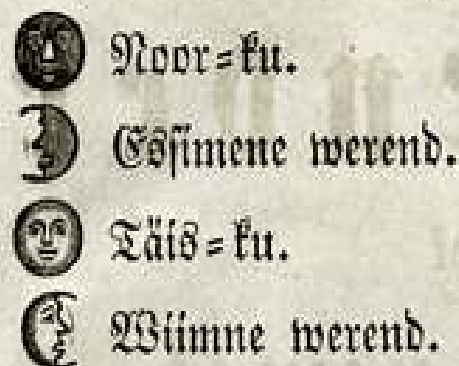 Noor-ku.
Essimene werend.
Täis-ku.
Wiimne werend.